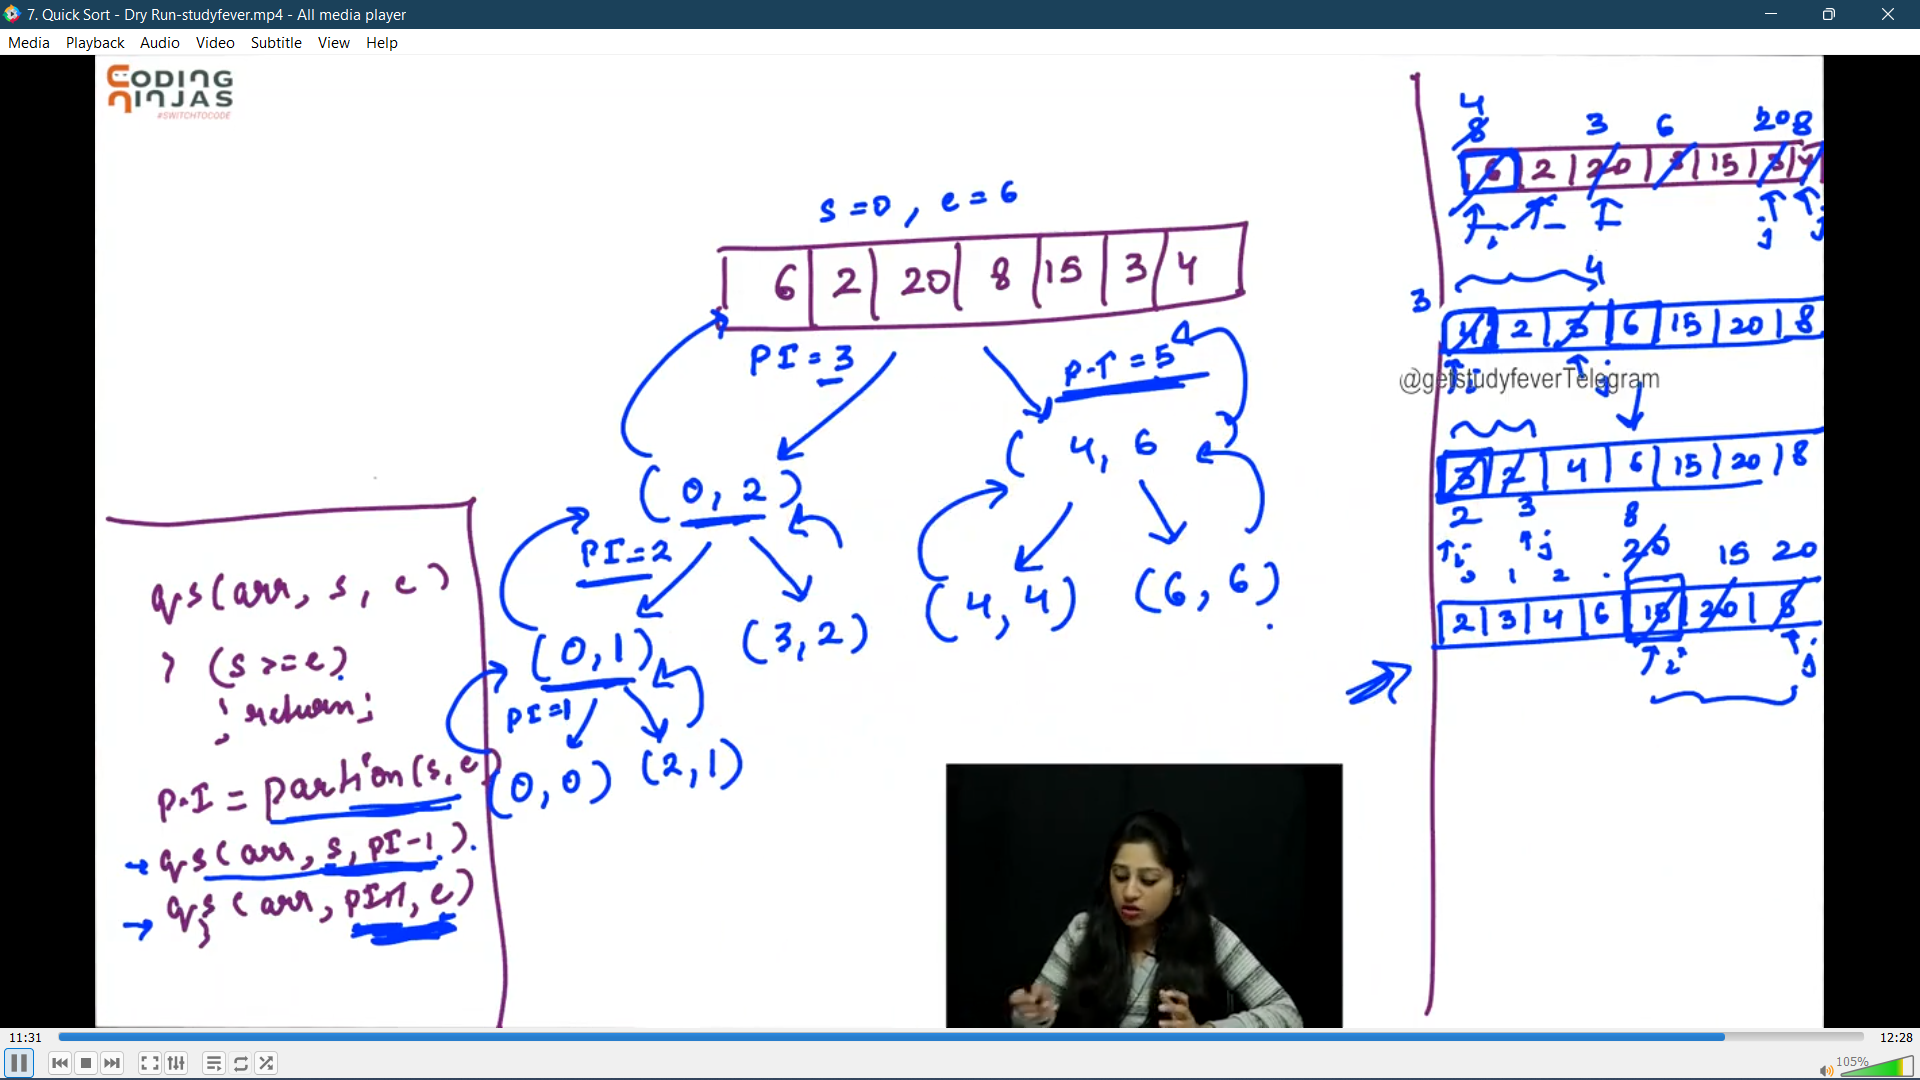 7. Quick Sort - Dry Run-studyfever.mp4 - All media player
Media Playback Audio Video Subtitle View Help
CODING
NINJAS
#SWITCHTOCODE
s=0, e=6
6 2 20 8 15 3 4
PI=3
P.I=5
(0, 2)
(4, 6)
PI=2
(0, 1)
(3, 2)
(4, 4)
(6, 6)
PI=1
(0, 0)
(2, 1)
qs(arr, s, e)
(s>=e)
return;
P.I = partion(s, e)
qs(arr, s, PI-1)
qs(arr, PI+1, e)
4
8 3 6 20 8
6 2 20 8 15 3 4
i j j
4
3
4 2 3 6 15 20 8
i j
@getstudyfeverTelegram
3 2 4 6 15 20 8
2 3 8
i j 20 15 20
0 1 2
2 3 4 6 15 20 8
i j
11:31
12:28
105%